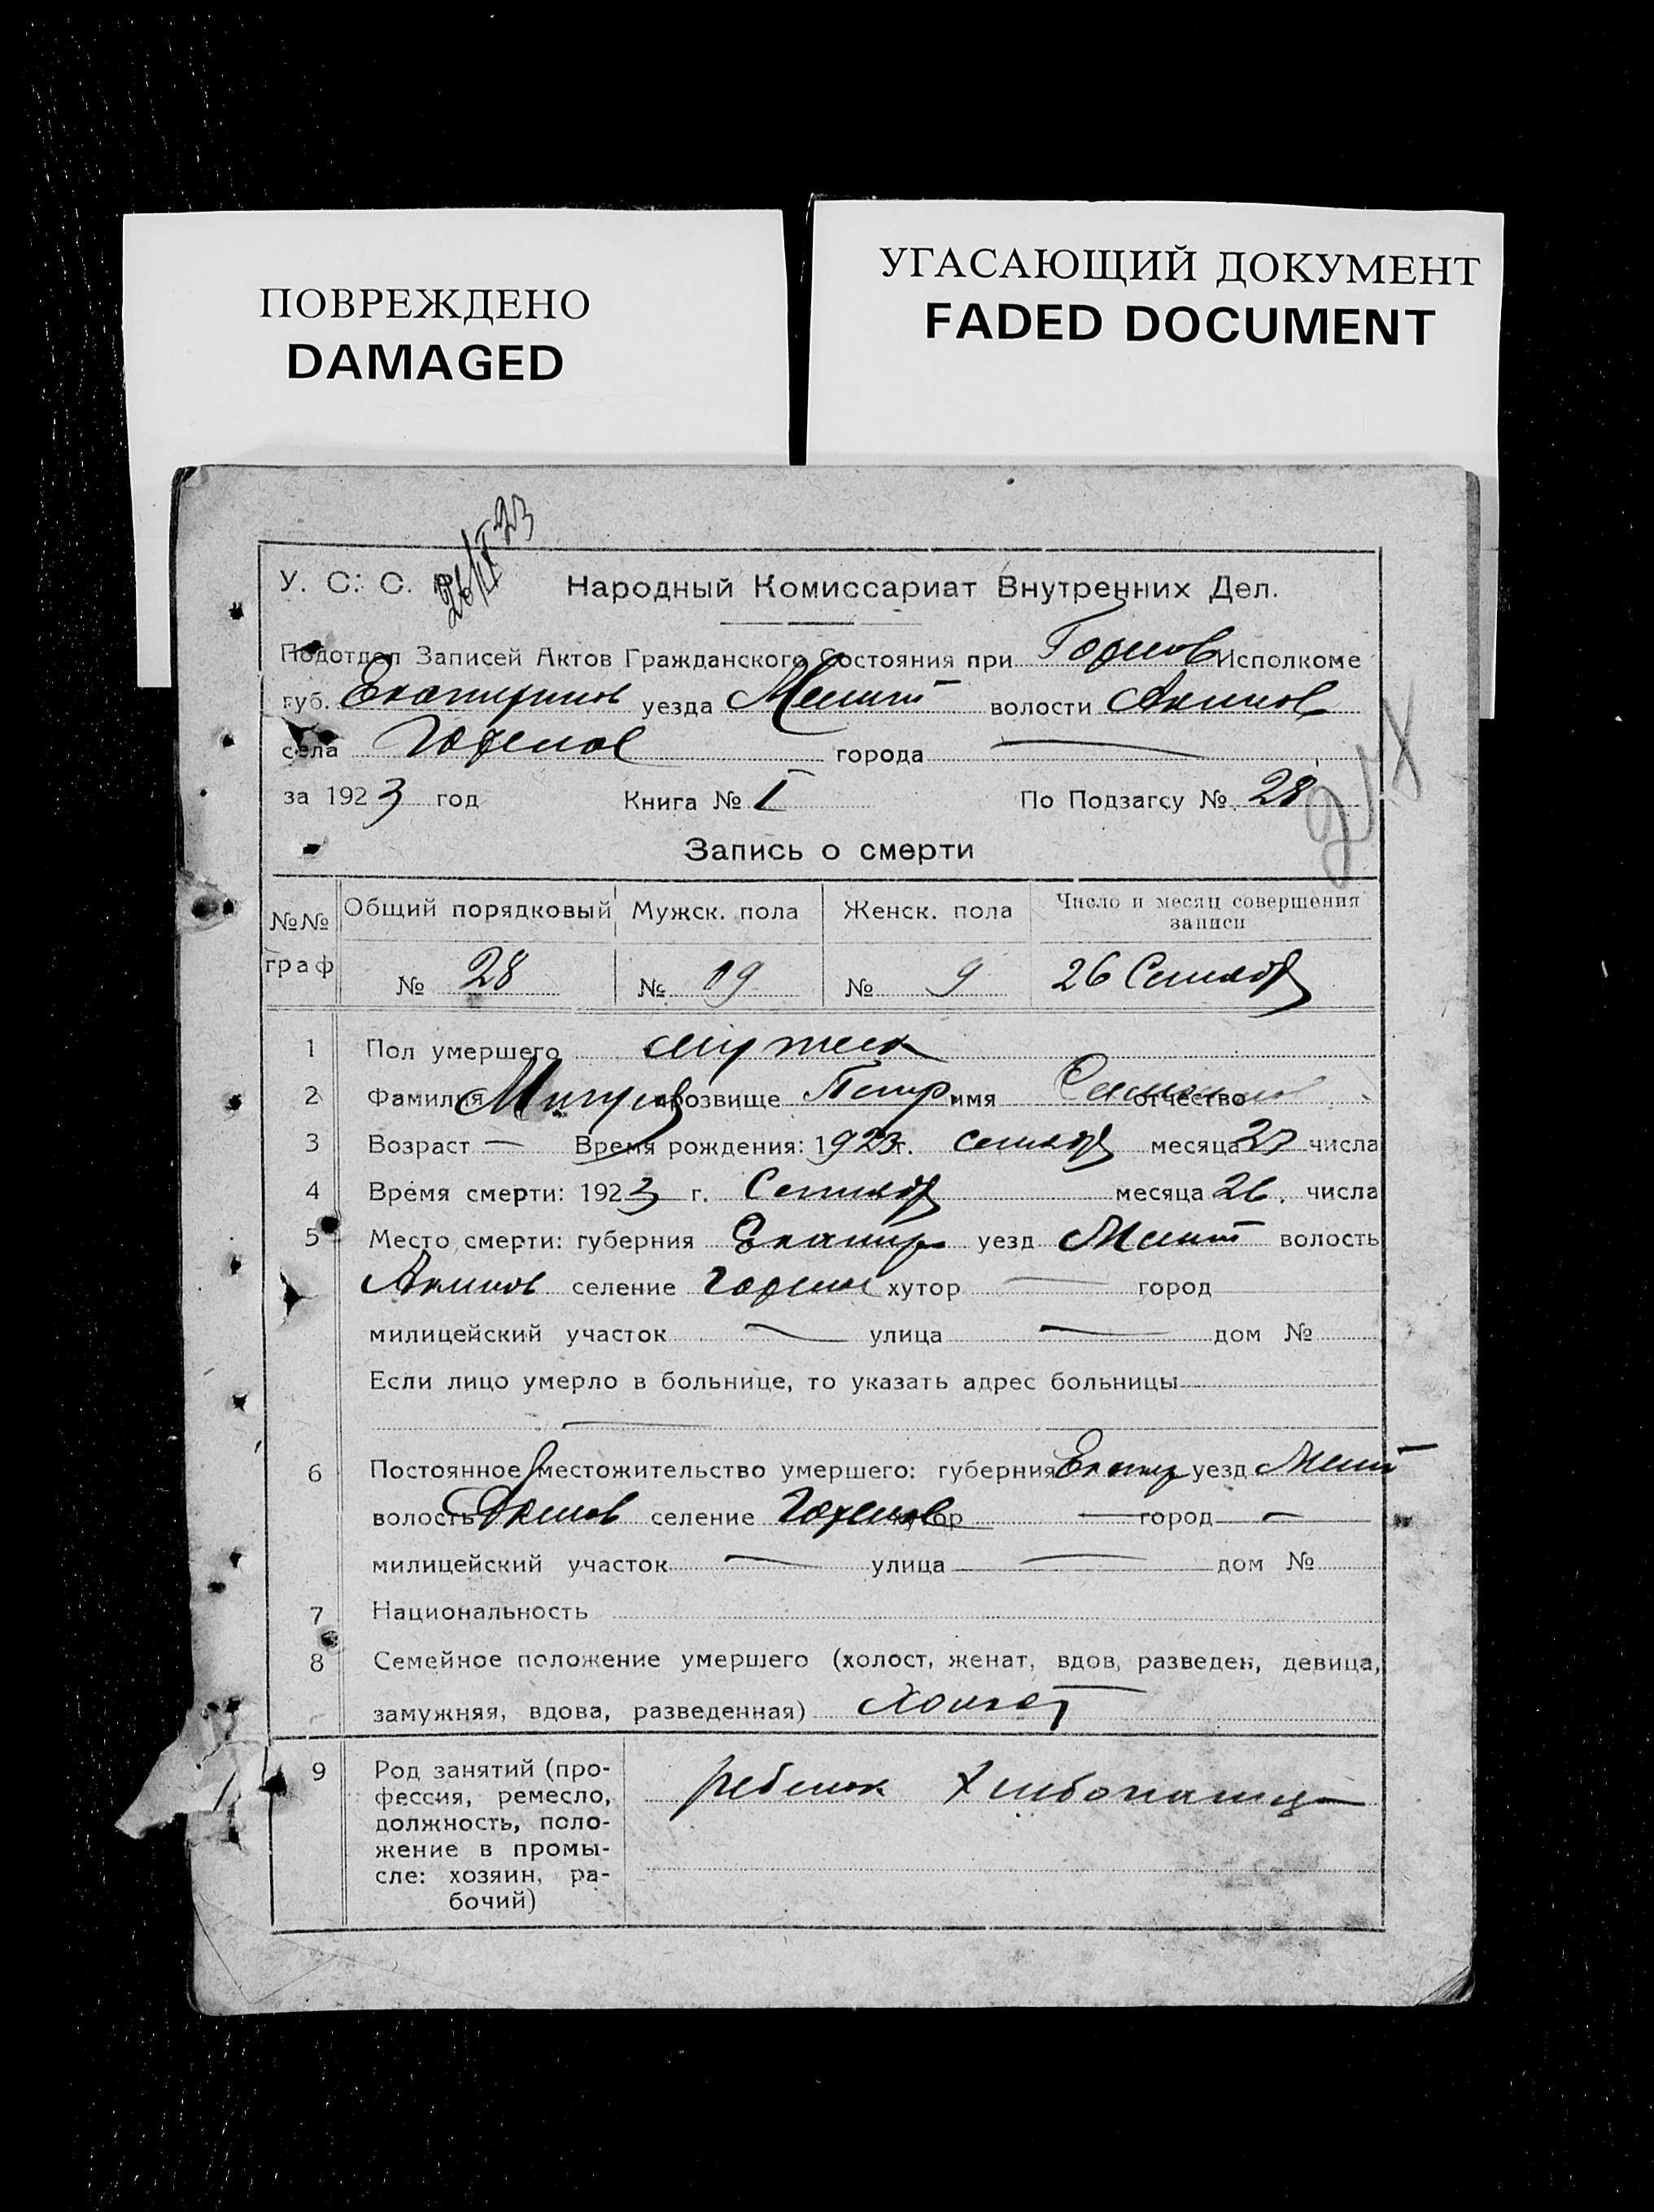 ПОВРЕЖДЕНО
DAMAGED
УГАСАЮЩИЙ ДОКУМЕНТ
FADED DOCUMENT
26/IX 23
У. С. С. Народный Комиссариат Внутренних Дел.
Подотдел Записей Актов Гражданского Состояния при Исполкоме
губ. Екатеринов уезда Мелит волости Акимов
села города —
за 1923 год Книга № I По Подзагсу № 28
Запись о смерти
№№ граф Общий порядковый Мужск. пола Женск. пола Число и месяц совершения записи
№ 28 № 19 № 9 26 Сентябр
1 Пол умершего мужск
2 Фамилия прозвище Петр имя отчество
3 Возраст — Время рождения: 1923 г. сентябр месяца числа
4 Время смерти: 1923 г. Сентябр месяца 26. числа
5 Место смерти: губерния Екатер уезд Мелит волость
Акимов селение хутор — город
милицейский участок — улица — дом №
Если лицо умерло в больнице, то указать адрес больницы
—
6 Постоянное местожительство умершего: губерния Екатер уезд Мелит
волость Акимов селение хутор — город —
милицейский участок — улица — дом №
7 Национальность
8 Семейное положение умершего (холост, женат, вдов, разведен, девица,
замужняя, вдова, разведенная) холост
9 Род занятий (про-
фессия, ремесло,
должность, поло-
жение в промы-
сле: хозяин, ра-
бочий)
ребенок хлебопашца